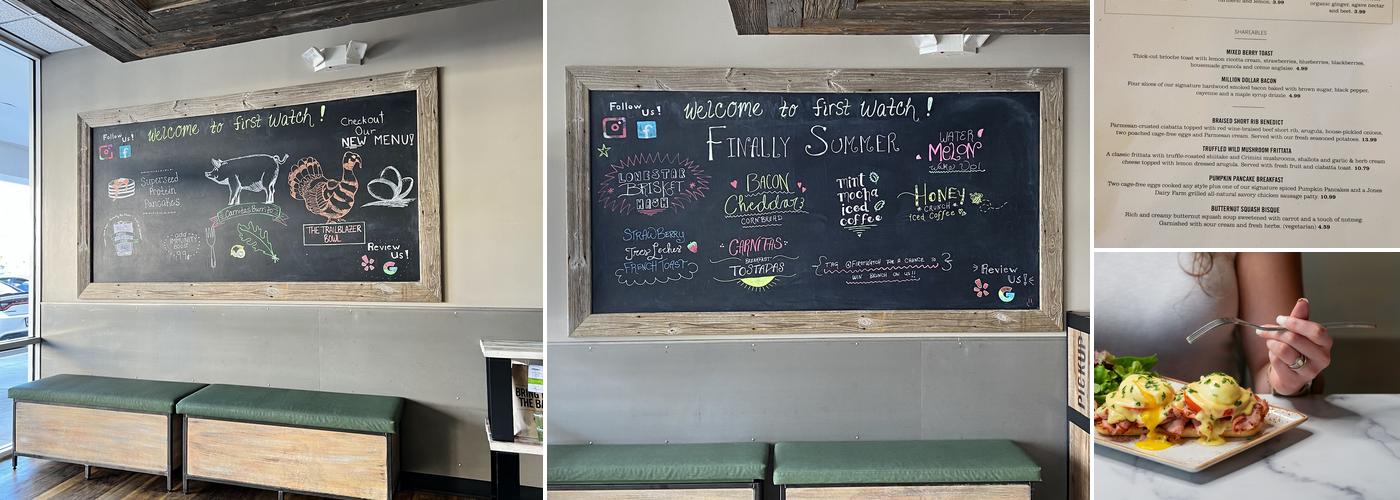 Follow Us!
welcome to first watch!
Checkout
Our
NEW MENU!
Superseed
Protein
Pancakes
Carnitas Burrito
THE TRAILBLAZER
BOWL
add
IMMUNITY
BOOST
Review
Us!
BRING
THE BA
Follow Us!
welcome to first watch!
FINALLY SUMMER
WATER
MELON
WAKE UP!
LONESTAR
BRISKET
HASH
BACON
Cheddar
CORNBREAD
mint
mocha
iced
coffee
HONEY
CRUNCH
Iced Coffee
STRAWBERRY
Tres Leches
FRENCH TOAST
CARNITAS
BREAKFAST
TOSTADAS
TAG @FIRSTWATCH FOR A CHANCE TO
WIN BRUNCH ON US!!
Review
Us!
PICKUP
turmeric and lemon. 3.99
organic ginger, agave nectar
and beet. 3.99
SHAREABLES
MIXED BERRY TOAST
Thick-cut brioche toast with lemon ricotta cream, strawberries, blueberries, blackberries,
housemade granola and crème anglaise. 4.99
MILLION DOLLAR BACON
Four slices of our signature hardwood smoked bacon baked with brown sugar, black pepper,
cayenne and a maple syrup drizzle. 4.99
BRAISED SHORT RIB BENEDICT
Parmesan-crusted ciabatta topped with red wine-braised beef short rib, arugula, house-pickled onions,
two poached cage-free eggs and Parmesan cream. Served with our fresh seasoned potatoes. 13.99
TRUFFLED WILD MUSHROOM FRITTATA
A classic frittata with truffle-roasted shiitake and Crimini mushrooms, shallots and garlic & herb cream
cheese topped with lemon dressed arugula. Served with fresh fruit and ciabatta toast. 10.79
PUMPKIN PANCAKE BREAKFAST
Two cage-free eggs cooked any style plus one of our signature spiced Pumpkin Pancakes and a Jones
Dairy Farm grilled all-natural savory chicken sausage patty. 10.99
BUTTERNUT SQUASH BISQUE
Rich and creamy butternut squash soup sweetened with carrot and a touch of nutmeg.
Garnished with sour cream and fresh herbs. (vegetarian) 4.59